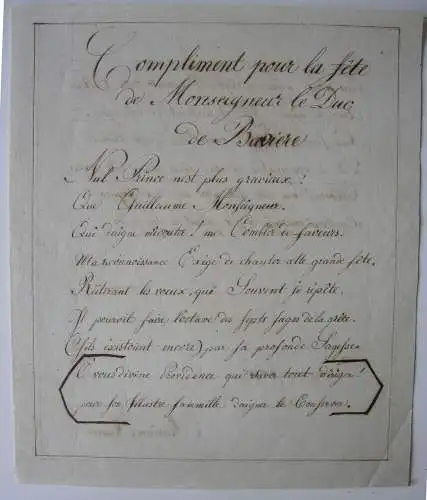 Compliment pour la fête
de Monseigneur le Duc
de Baviere
Nul Prince n'est plus gracieux!
Que Guillaume Monseigneur.
Qui daigne m'ecouter! me Combler de faveurs.
Ma reconnoissance Exige de chanter cette grande fête.
Réiterant les voeux, que Souvent je répète.
Il pouroit faire l'octave des sept sages de la grèce.
(S'ils existoient encore) par sa profonde Sagesse.
O vous divine Providence qui savez tout diriger!
pour son Illustre famille daignez le Conserver.